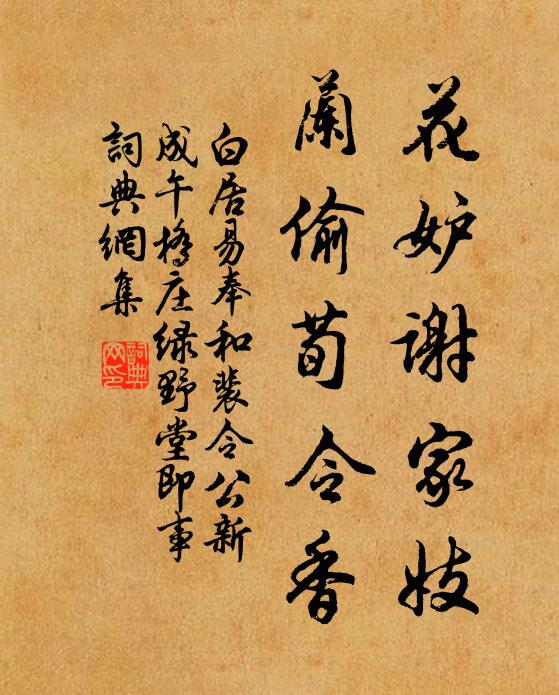 花妒谢家妓
蘭偷荀令香
白居易奉和裴令公新
成午橋庄绿野堂即事
詞典網集
詞典
网印